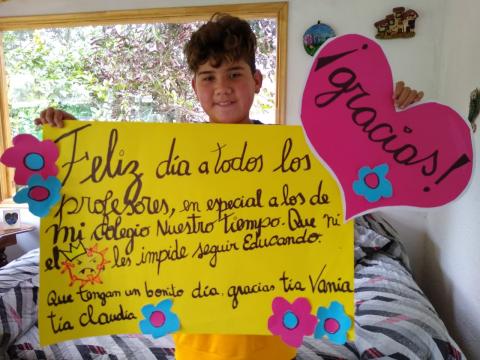 ¡gracias!
Feliz día a todos los
profesores, en especial a los de
mi colegio Nuestro tiempo. Que ni
el les impide seguir Educando.
Que tengan un bonito día. gracias tía Vania
tía claudia